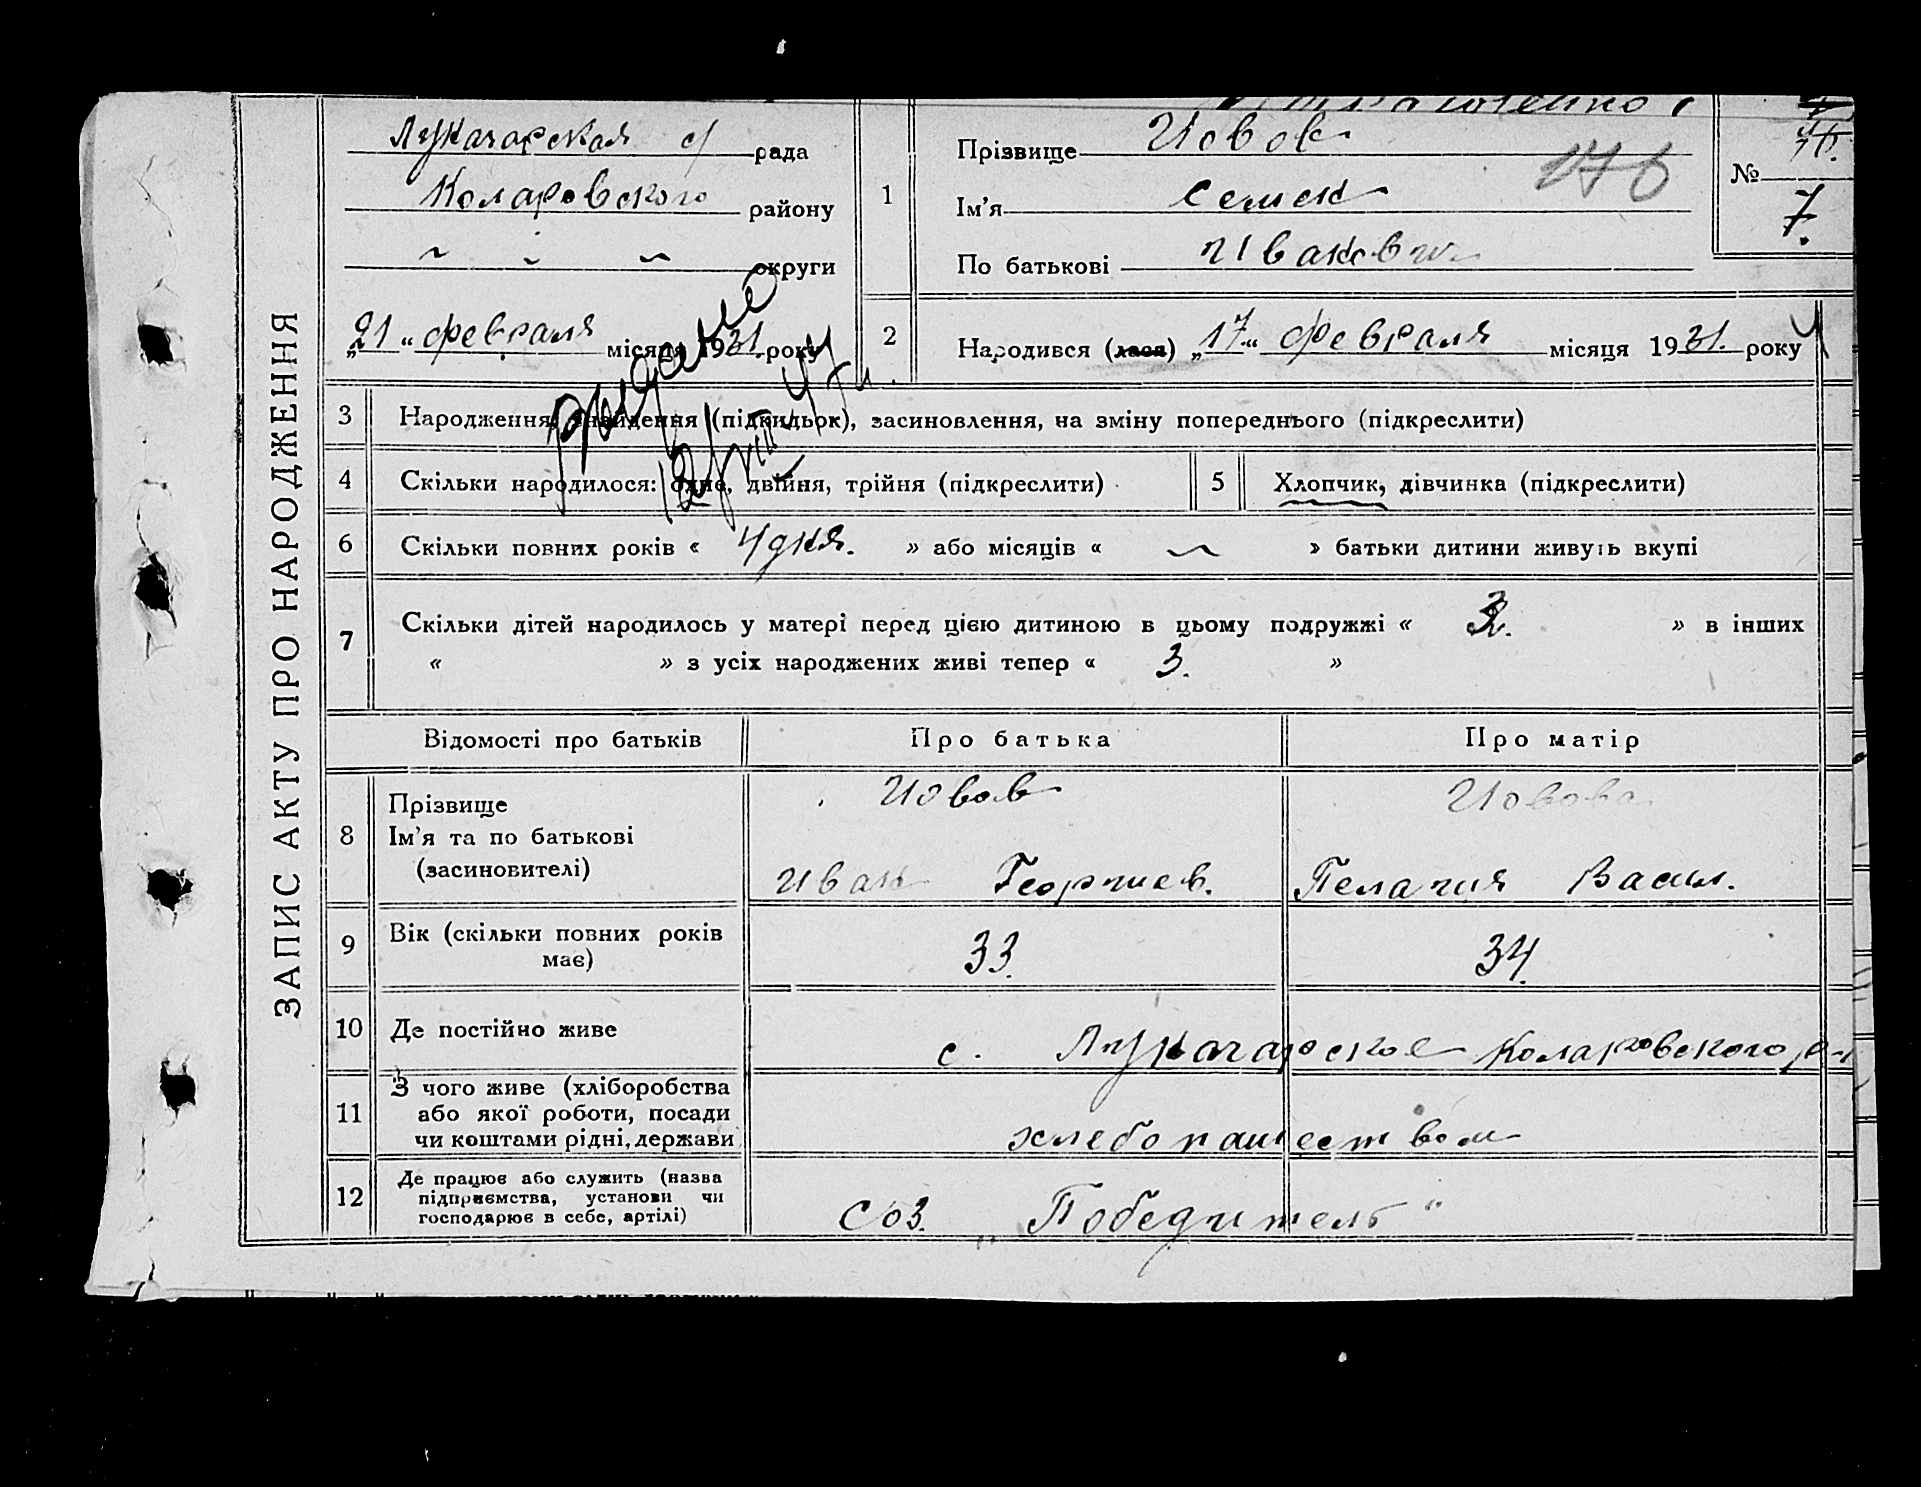 ЗАПИС АКТУ ПРО НАРОДЖЕННЯ
с/ рада
Коларовского району
~ ~ ~ округи
„21“ февраля місяця 1931. року
видано
1
Прізвище Иовов
176
Ім’я Семен
По батькові Иванович
№
7.
2
Народився (лася) „17“ февраля місяця 1931. року
3 Народження, знайдення (підкидьок), засиновлення, на зміну попереднього (підкреслити)
4 Скільки народилося: одне, двійня, трійня (підкреслити)
5 Хлопчик, дівчинка (підкреслити)
6 Скільки повних років « 4 дня. » або місяців « ~ » батьки дитини живуть вкупі
7 Скільки дітей народилось у матері перед цією дитиною в цьому подружжі « 3. » в інших
« » з усіх народжених живі тепер « 3. »
Відомості про батьків Про батька Про матір
8 Прізвище
Ім’я та по батькові
(засиновителі)
Иовов
Иван Георгиев.
Иовова
Пелагия Васил.
9 Вік (скільки повних років
має)
33. 34.
10 Де постійно живе
с. Коларовского р-
11 З чого живе (хліборобства
або якої роботи, посади
чи коштами рідні, держави
хлебопашеством
12 Де працює або служить (назва
підприємства, установи чи
господарює в себе, артілі)
СОЗ. „Победитель“